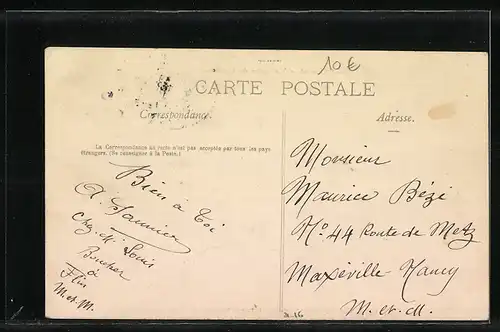 10€
CARTE POSTALE
Correspondance.
Adresse.
La Correspondance au recto n'est pas acceptée par tous les pays
étrangers. (Se renseigner à la Poste.)
Bien à toi
A. Saunier
Chez M. Louis
Boucher
à
Flin
M-et-M.
Monsieur
Maurice Bézé
No 44 Route de Metz
Maxéville Nancy
M-et-M.